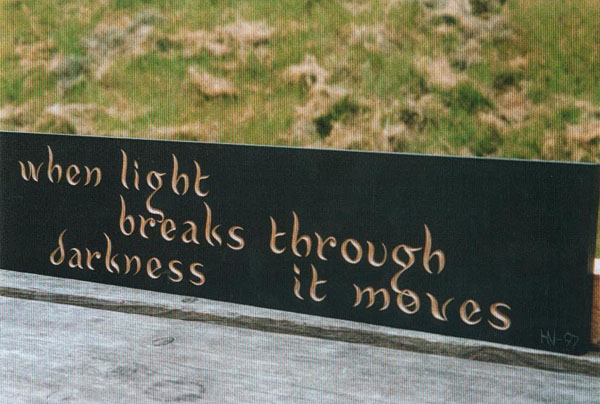 when light
breaks through
darkness it moves
HV-97